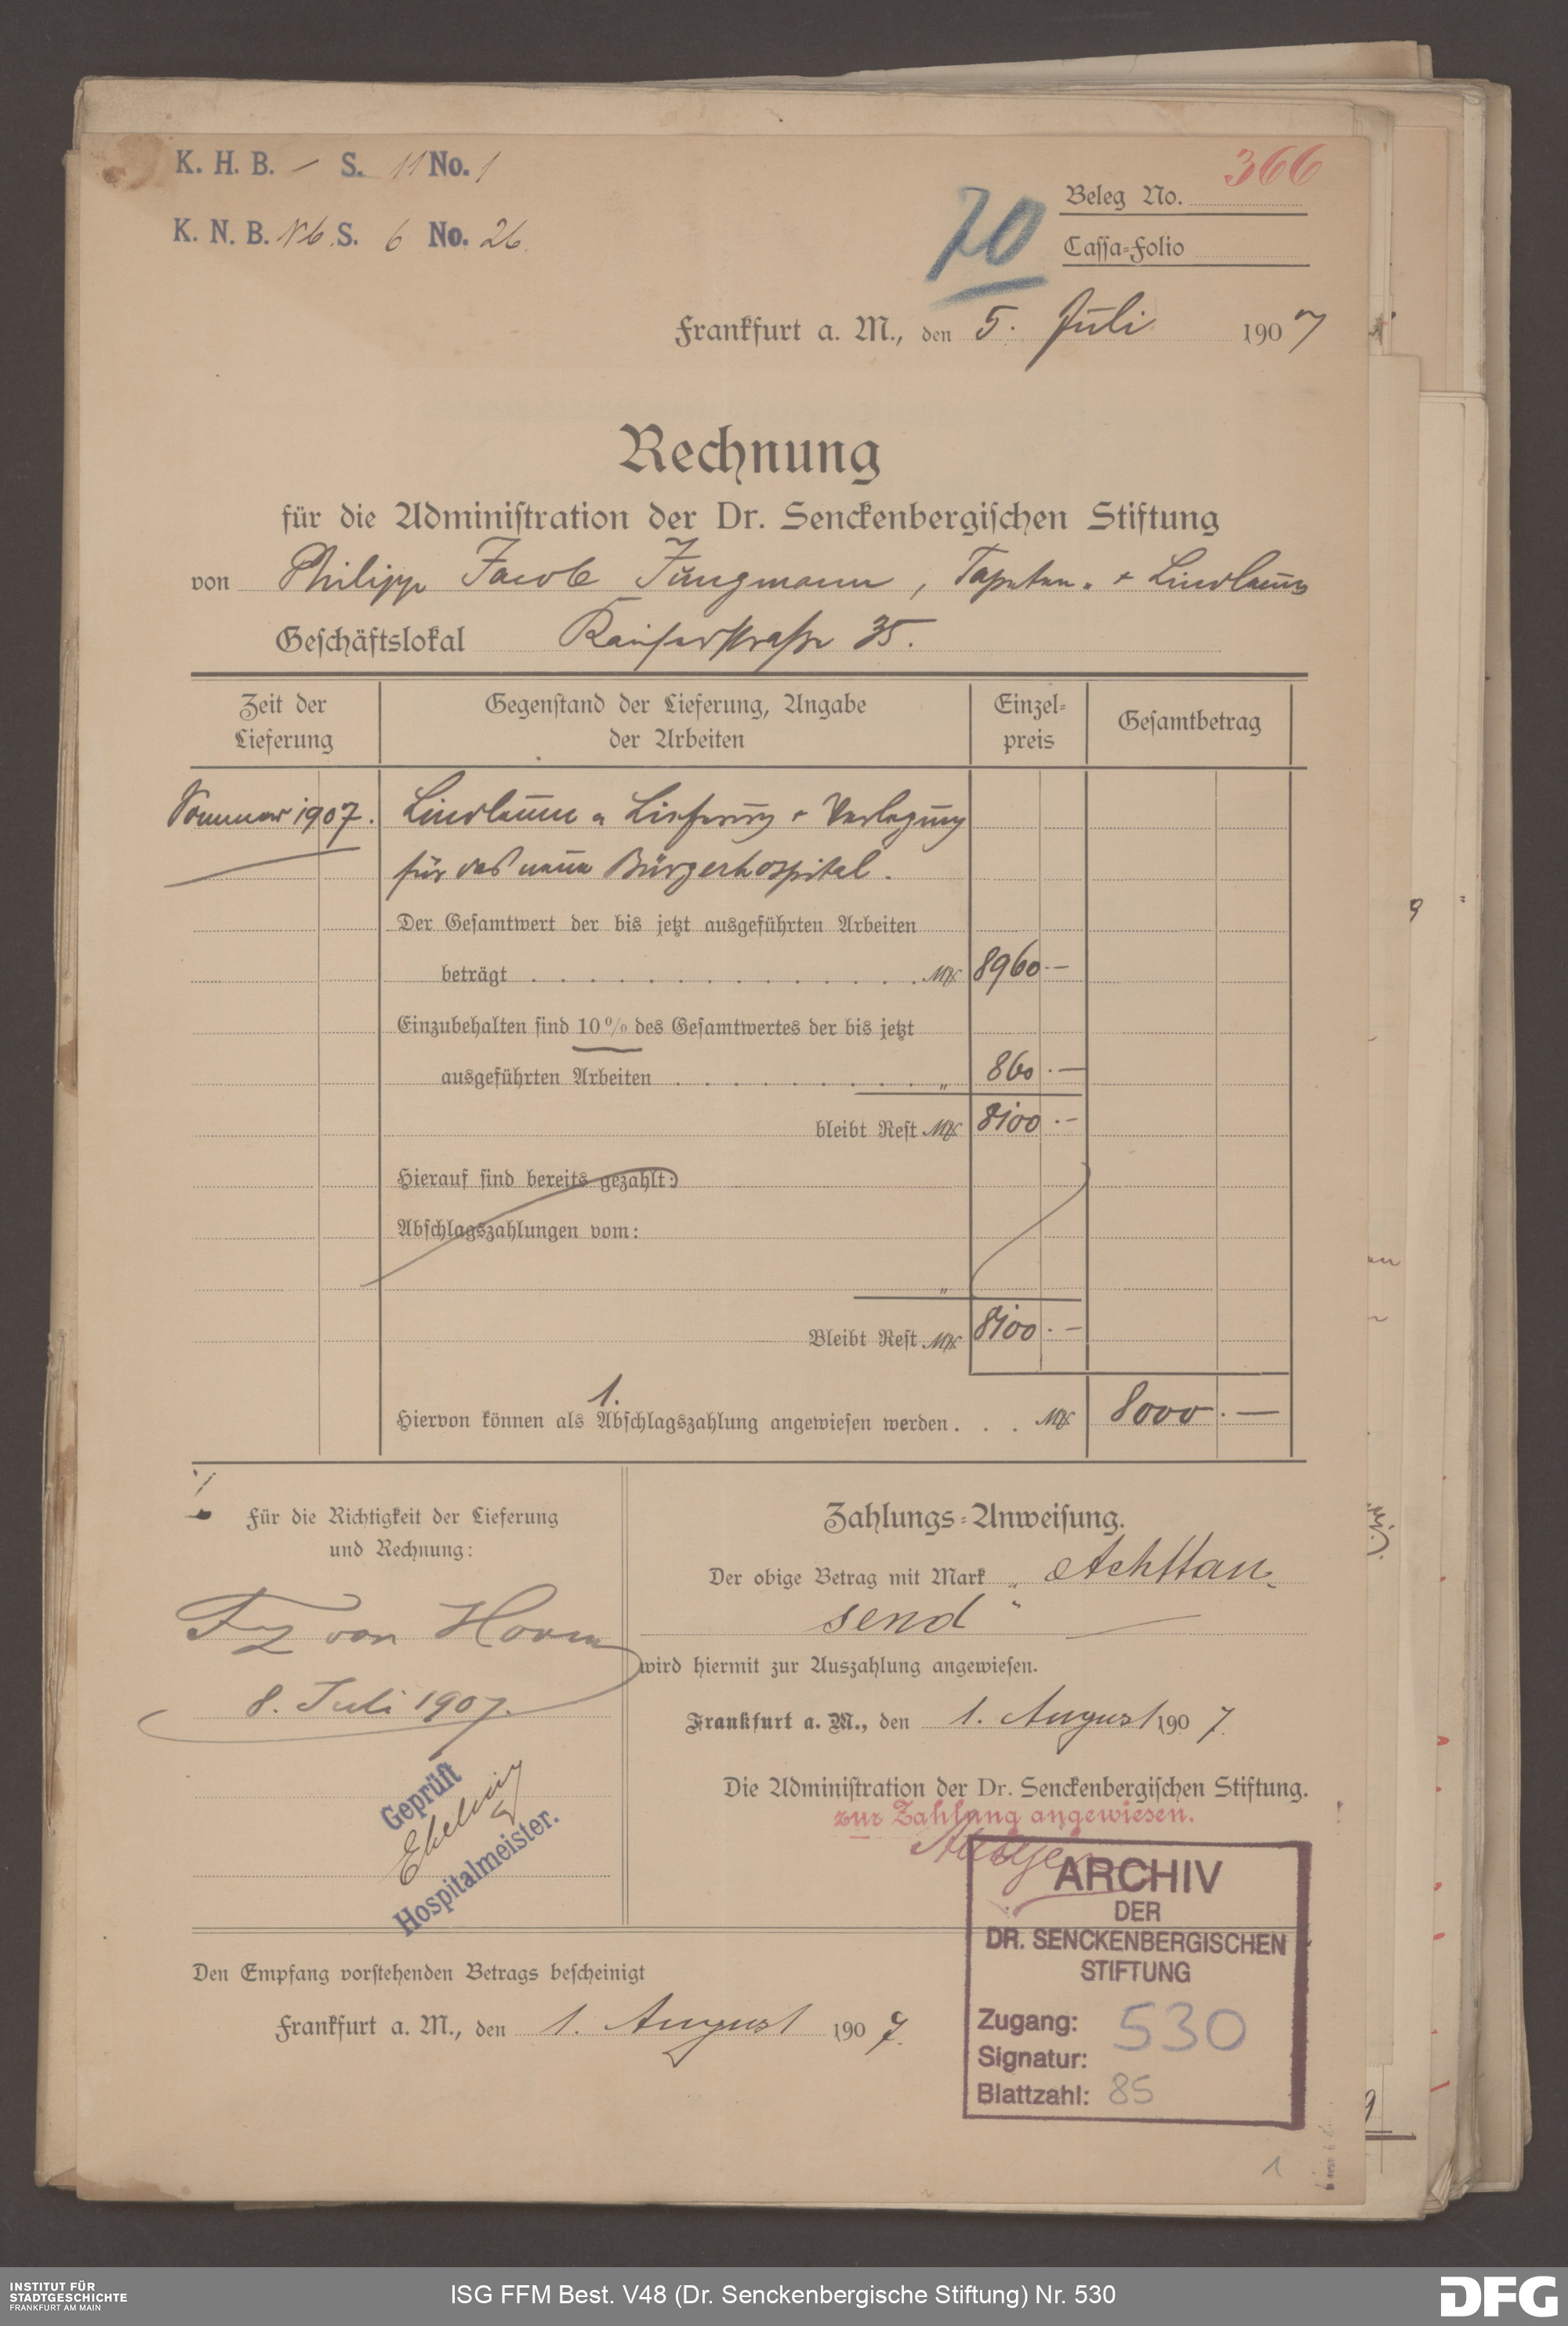 K. H. B. – S. 11 No. 1
K. N. B. Nb. S. 6 No. 26.
366
Beleg No.
70
Caſſa-Folio
Frankfurt a. M., den 5. Juli 1907
Rechnung
für die Adminiſtration der Dr. Senckenbergiſchen Stiftung
von Philipp Jacob Jungmann, Tapeten- & Linoleum
Geſchäftslokal Kaiserstraße 35.
Zeit der Lieferung
Gegenſtand der Lieferung, Angabe der Arbeiten
Einzel-preis
Geſamtbetrag
Sommer 1907. Linoleum-Lieferung & Verlegung
für das neue Bürgerhospital.
Der Geſamtwert der bis jetzt ausgeführten Arbeiten
beträgt . . . . . . . . . . . . . . Mk 8960.–
Einzubehalten ſind 10% des Geſamtwertes der bis jetzt
ausgeführten Arbeiten . . . . . . . . . „ 860.–
bleibt Reſt Mk 8100.–
Hierauf ſind bereits gezahlt:
Abſchlagszahlungen vom:
„
Bleibt Reſt Mk 8100.–
1.
Hiervon können als Abſchlagszahlung angewieſen werden . . . Mk 8000.–
Für die Richtigkeit der Lieferung
und Rechnung:
Fz von Hoven
8. Juli 1907.
Geprüft
Hospitalmeister.
Zahlungs-Anweiſung.
Der obige Betrag mit Mark „Achttau-
send“
wird hiermit zur Auszahlung angewieſen.
Frankfurt a. M., den 1. August 1907.
Die Adminiſtration der Dr. Senckenbergiſchen Stiftung.
zur Zahlung angewiesen.
ARCHIV
DER
DR. SENCKENBERGISCHEN
STIFTUNG
Zugang: 530
Signatur:
Blattzahl: 85
Den Empfang vorſtehenden Betrags beſcheinigt
Frankfurt a. M., den 1. August 1907.
1
INSTITUT FÜR
STADTGESCHICHTE
FRANKFURT AM MAIN
ISG FFM Best. V48 (Dr. Senckenbergische Stiftung) Nr. 530
DFG